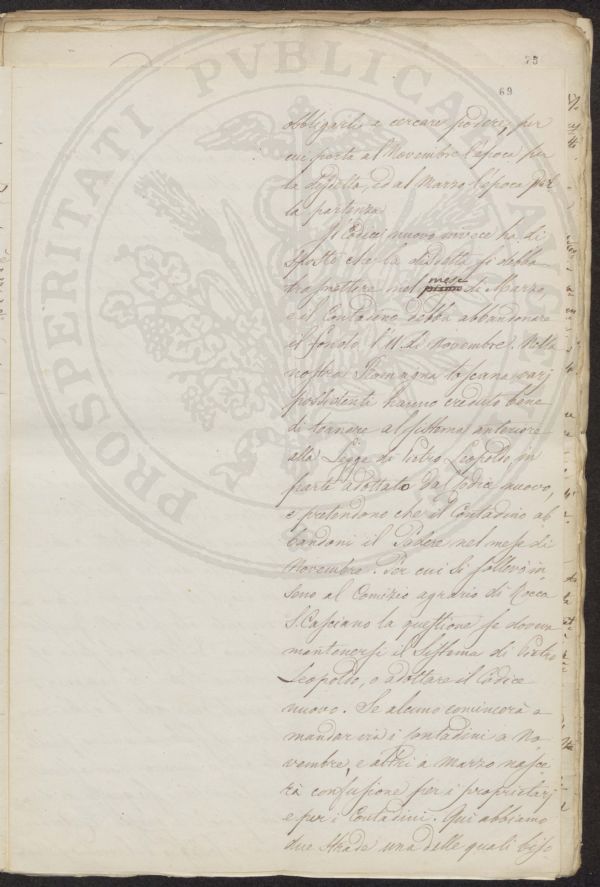 75
69
obbligarli a cercare poderi, per
cui porta al Novembre l'epoca per
la disdetta, ed al Marzo l'epoca per
la partenza.
Il Codice nuovo invece ha di
sposto che la disdetta si debba
trasmettere nel mese di Marzo
e il Contadino debba abbandonare
il fondo l'11 di Novembre. Nella
nostra Romagna toscana varj
possidenti hanno creduto bene
di tornare al sistema anteriore
alla Legge di Pietro Leopoldo, in
parte adottato dal Codice nuovo,
e pretendono che il Contadino ab
bandoni il Podere nel mese di
Novembre. Per cui si sollevò in
seno al Comizio agrario di Rocca
S. Casciano la questione se doveva
mantenersi il Sistema di Pietro
Leopoldo, o adottare il Codice
nuovo. Se alcuno comincerà a
mandar via i Contadini a No
vembre, e altri a Marzo nasce
rà confusione per i proprietarj
e per i Contadini. Qui abbiamo
due strade una delle quali biso
PROSPERITATI PVBLICAE